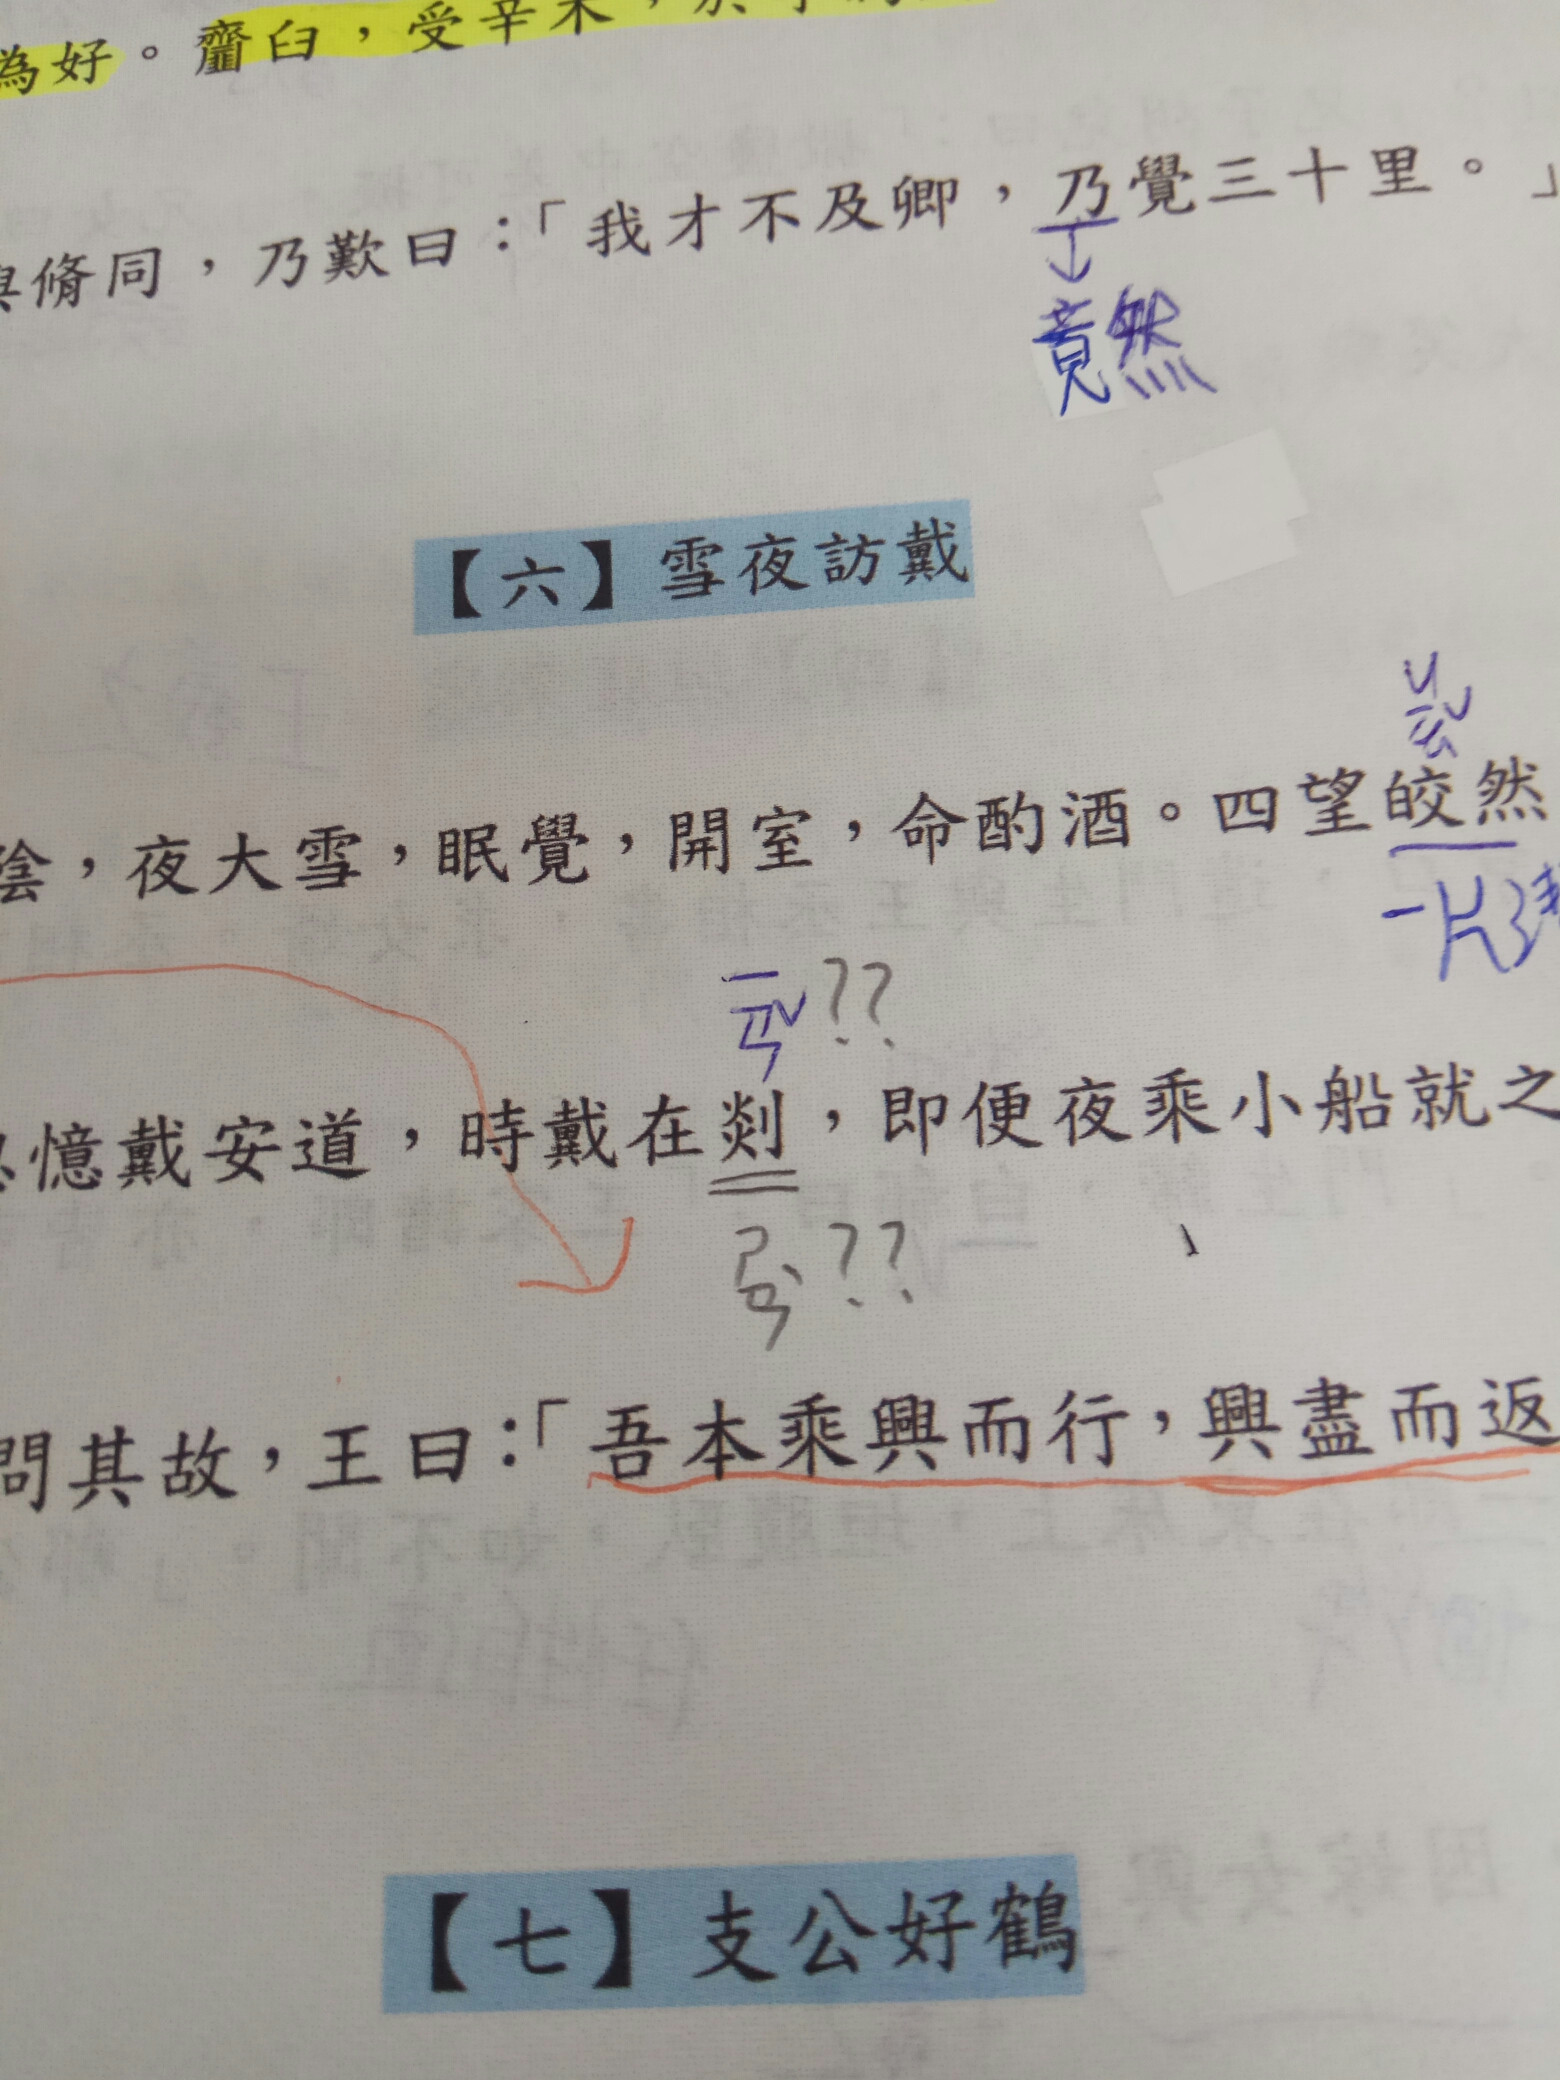 為好。齏臼，受辛
與脩同，乃歎曰：「我才不及卿，乃覺三十里。」
竟然
【六】雪夜訪戴
陰，夜大雪，眠覺，開室，命酌酒。四望皎然
一片
ㄧㄢˇ??
憶戴安道，時戴在剡，即便夜乘小船就之
ㄕㄢˋ??
問其故，王曰：「吾本乘興而行，興盡而返
【七】支公好鶴